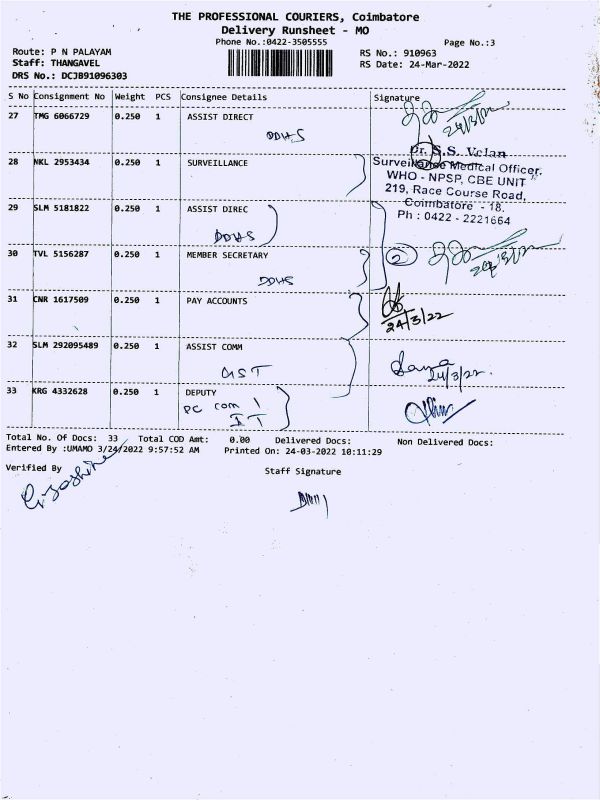 THE PROFESSIONAL COURIERS, Coimbatore
Delivery Runsheet - MO
Phone No.:0422-3505555
Page No.:3
Route: P N PALAYAM
RS No.: 910963
Staff: THANGAVEL
RS Date: 24-Mar-2022
DRS No.: DCJB91096303
S No Consignment No Weight PCS Consignee Details Signature
27 TMG 6066729 0.250 1 ASSIST DIRECT
DDHS
24/3/22
28 NKL 2953434 0.250 1 SURVEILLANCE
Dr. S.S. Velan
Surveillance Medical Officer.
WHO - NPSP, CBE UNIT
219, Race Course Road,
Coimbatore - 18.
Ph : 0422 - 2221664
29 SLM 5181822 0.250 1 ASSIST DIREC
DDHS
30 TVL 5156287 0.250 1 MEMBER SECRETARY
DDHS
2
24/3/22
31 CNR 1617509 0.250 1 PAY ACCOUNTS
24/3/22
32 SLM 292095489 0.250 1 ASSIST COMM
GST
24/3/22.
33 KRG 4332628 0.250 1 DEPUTY
PC com
IT
Total No. Of Docs: 33 Total COD Amt: 0.00 Delivered Docs: Non Delivered Docs:
Entered By :UMAMO 3/24/2022 9:57:52 AM Printed On: 24-03-2022 10:11:29
Verified By
Staff Signature